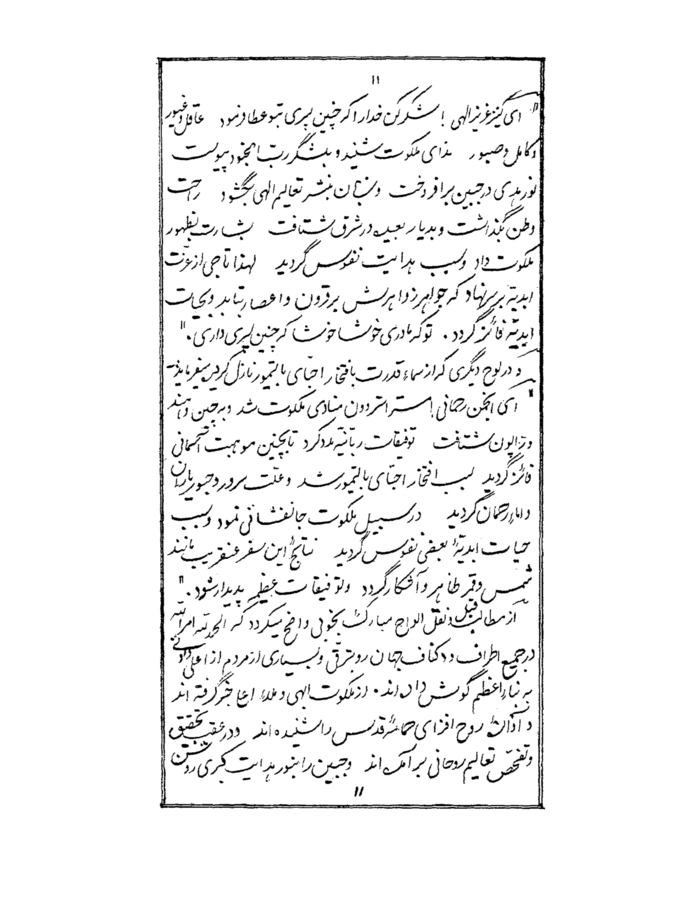 ۱۱
" ای کنیز عزیز الهی ! شکر کن خدا را که چنین پسری بتو عطا فرمود عاقل و غیور
و کامل و صبور ندای ملکوت شنید و بلشگر رب الجنود پیوست
نور هدی در جبین برافروخت و لسان بنشر تعالیم الهی بگشود راحت
وطن بگذاشت و بدیار بعیده در شرق شتافت بشارت بظهور
ملکوت داد و سبب هدایت نفوس گردید لهذا تاجی از عزت
ابدیه بر سر نهاد که جواهر زواهرش بر قرون و اعصار بتابد و بحیات
ابدیه فائز گردد . تو که مادری خوشا خوشا که چنین پسری داری . "
و در لوح دیگری که از سماء قدرت بافتخار احبای بالتیمور نازل گردید میفرمایند
" ای انجمن رحمانی ! مستر استرون منادی ملکوت شد و به چین و هند
و شتافت توفیقات ربانیه مدد کرد تا بچنین موهبت آسمانی
فائز گردید سبب افتخار احبای بالتیمور شد و علت سرور و حبور یاران
و اماء رحمان گردید در سبیل ملکوت جانفشانی نمود و سبب
حیات ابدیهٔ بعضی نفوس گردید نتایج این سفر عنقریب مانند
شمس و قمر ظاهر و آشکار گردد و توفیقات عظیم پدیدار شود . "
از مطالب قبل و نقل الواح مبارکه بخوبی واضح میگردد که الحمدلله امرالله
در جمیع اطراف و اکناف جهان رو بترقی و بسیاری از مردم از اعلی و ادنی
به نباء اعظم گوش داده اند . از ملکوت الهی و ملاء اعلا خبر گرفته اند
و روح افزای حمامهٔ قدس را شنیده اند و در عقب تحقیق
و تفحص تعالیم روحانی برآمده اند و جبین را بنور هدایت کبری روشن
۱۱